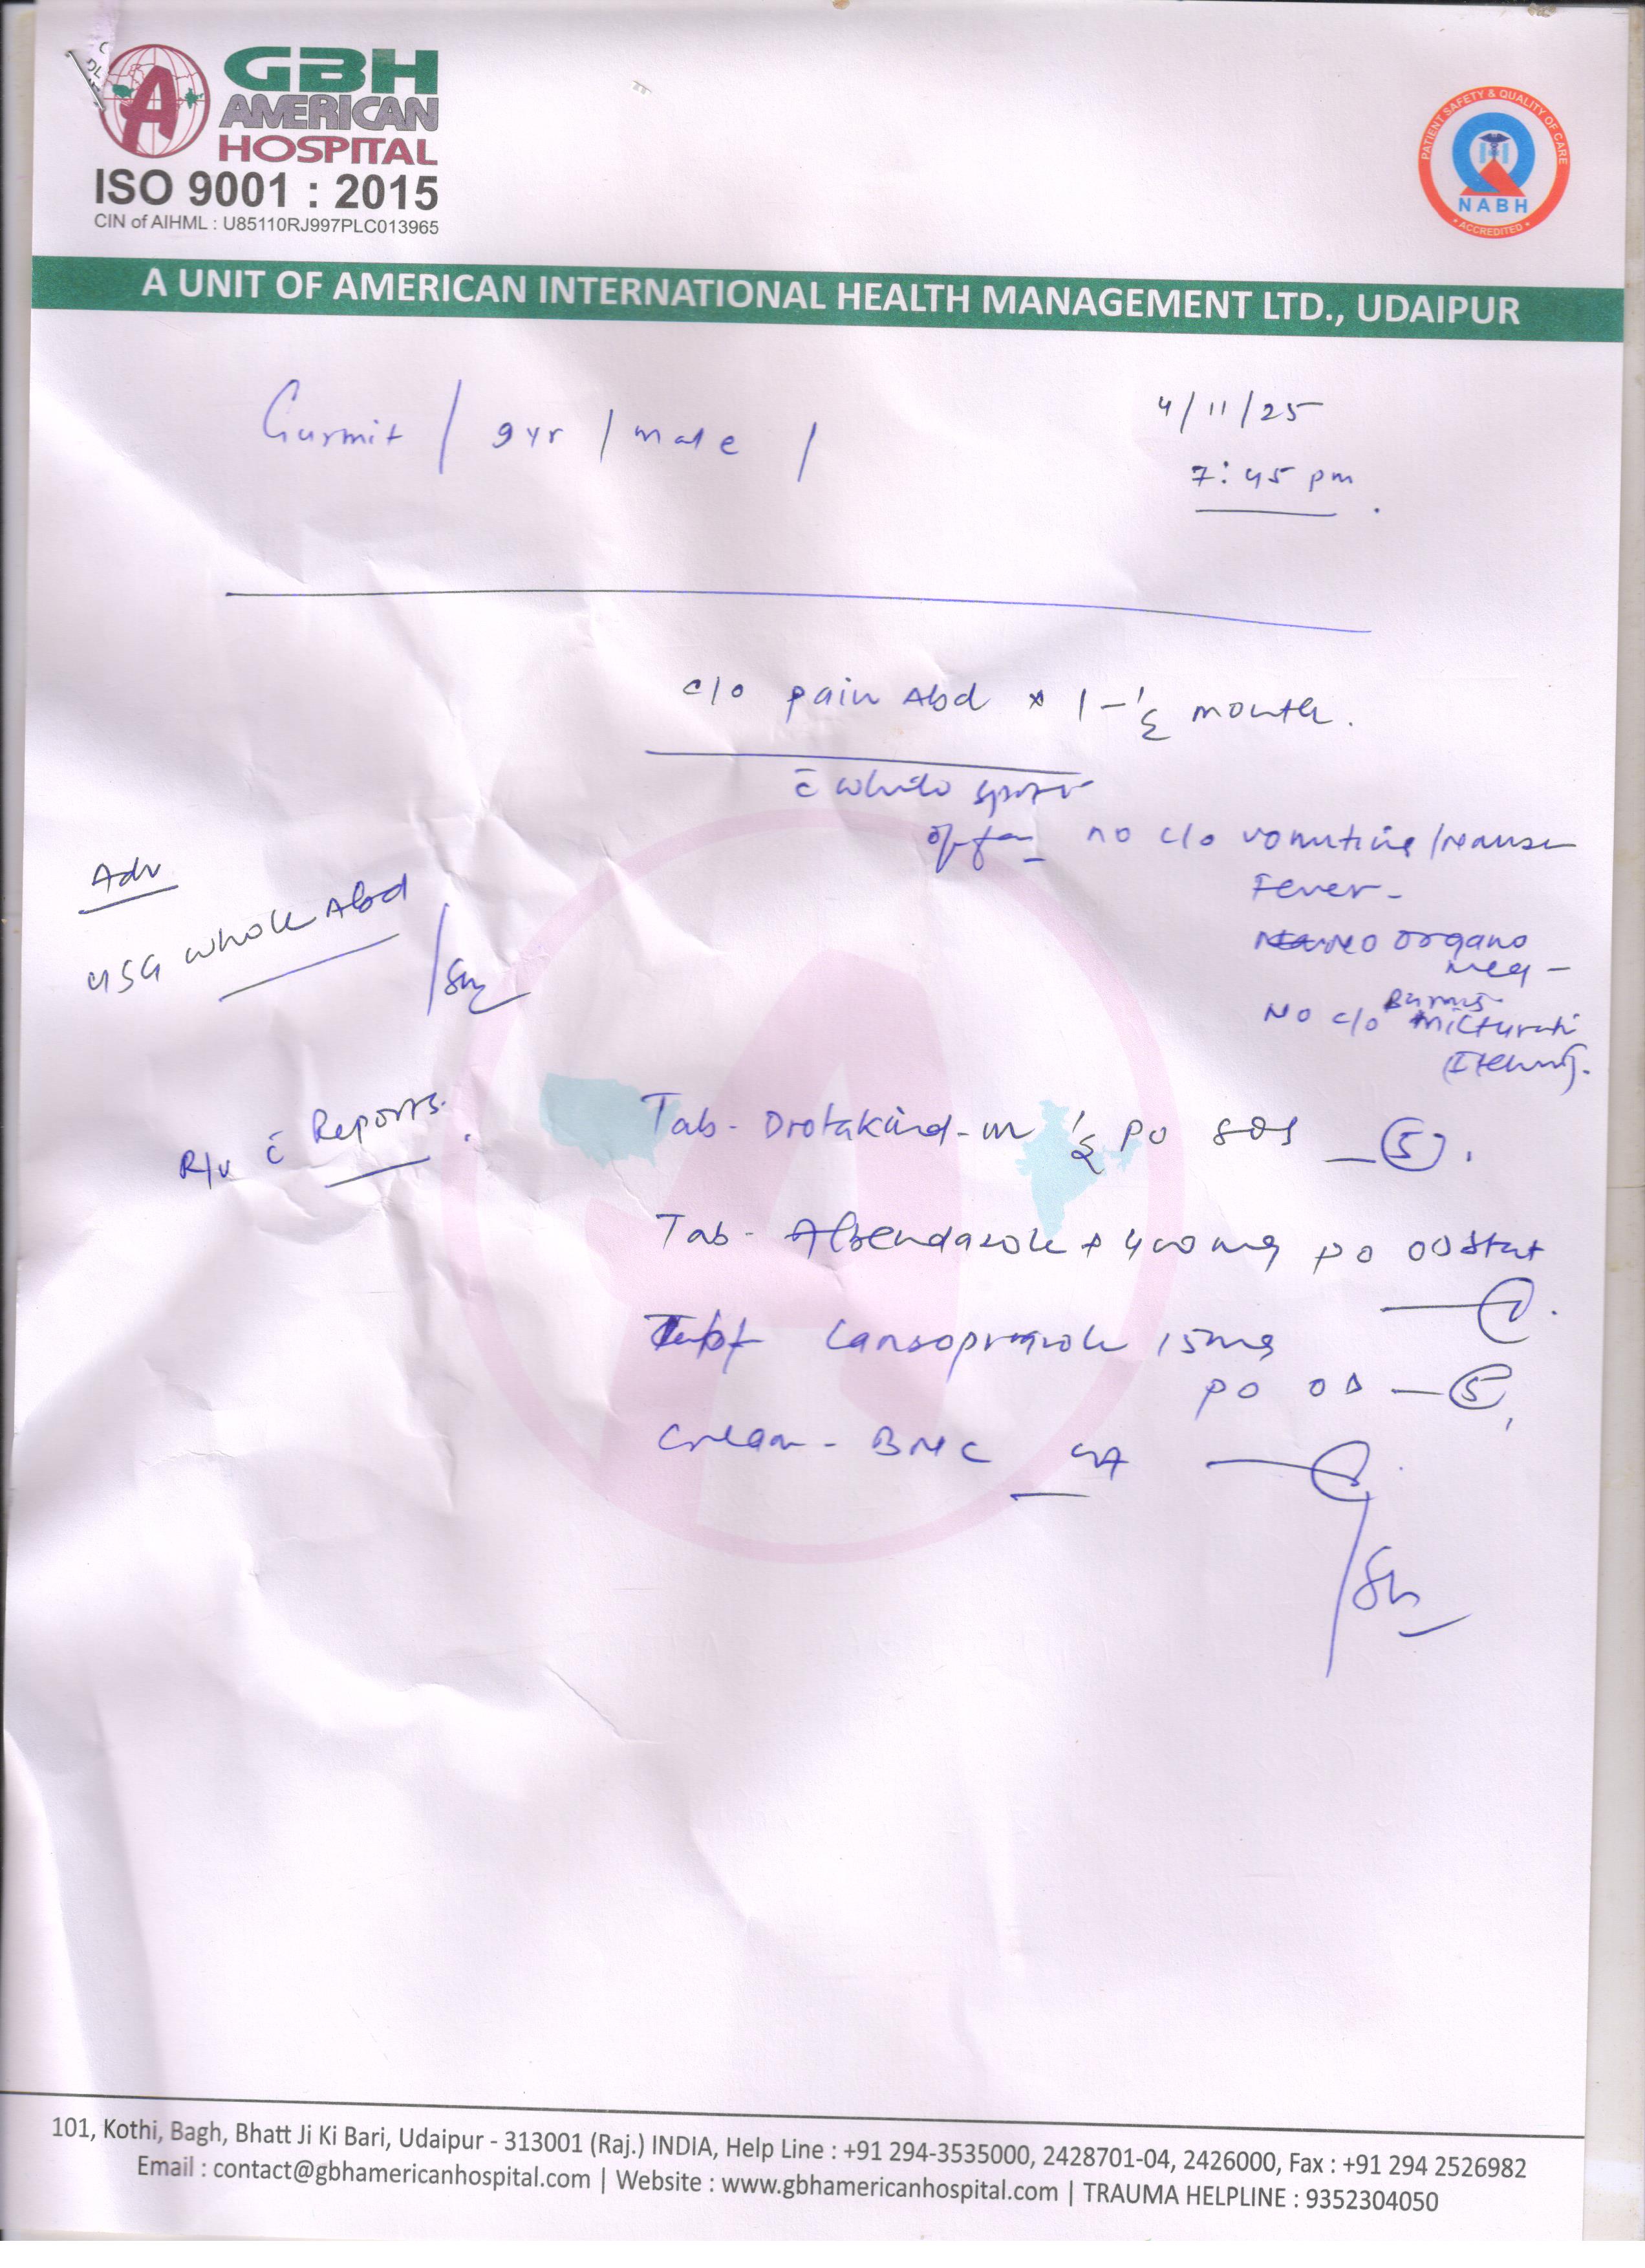 GBH
AMERICAN
HOSPITAL
ISO 9001 : 2015
CIN of AIHML : U85110RJ997PLC013965
PATIENT SAFETY & QUALITY OF CARE
NABH
• ACCREDITED •
A UNIT OF AMERICAN INTERNATIONAL HEALTH MANAGEMENT LTD., UDAIPUR
Gurmit / 9 yr / male /
4/11/25
7:45 pm
c/o pain Abd × 1-1/2 month.
c̄ white
no c/o vomiting / Nausea
Fever -
No organo
meg -
No c/o Burning
micturati
Itching.
Adv
USG whole Abd
R/v c̄ Reports.
Tab - Drotakind-m 1/2 po sos - 5.
Tab - Albendazole 400 mg po OD stat
1.
Lansoprazole 15mg
po OD - 5,
Cream - BNC
101, Kothi, Bagh, Bhatt Ji Ki Bari, Udaipur - 313001 (Raj.) INDIA, Help Line : +91 294-3535000, 2428701-04, 2426000, Fax : +91 294 2526982
Email : contact@gbhamericanhospital.com | Website : www.gbhamericanhospital.com | TRAUMA HELPLINE : 9352304050